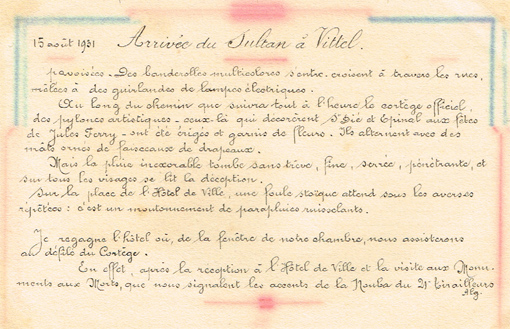 15 août 1931
Arrivée du Sultan à Vittel.
pavoisées. Des banderolles multicolores s'entre-croisent à travers les rues,
mêlées à des guirlandes de lampes électriques.
Au long du chemin que suivra tout à l'heure le cortège officiel,
des pylones artistiques - ceux-là qui décorèrent St Dié et Epinal aux fêtes
de Jules Ferry - ont été érigés et garnis de fleurs. Ils alternent avec des
mâts ornés de faisceaux de drapeaux.
Mais la pluie inexorable tombe sans trève, fine, serrée, pénétrante, et
sur tous les visages se lit la déception.
Sur la place de l'Hôtel de Ville, une foule stoïque attend sous les averses
répétées : c'est un moutonnement de parapluies ruisselants.
Je regagne l'hôtel où, de la fenêtre de notre chambre, nous assisterons
au défilé du Cortège.
En effet, après la réception à l'Hôtel de Ville et la visite aux Monu-
ments aux Morts, que nous signalent les accents de la Nouba du 21e Tirailleurs
Alg.